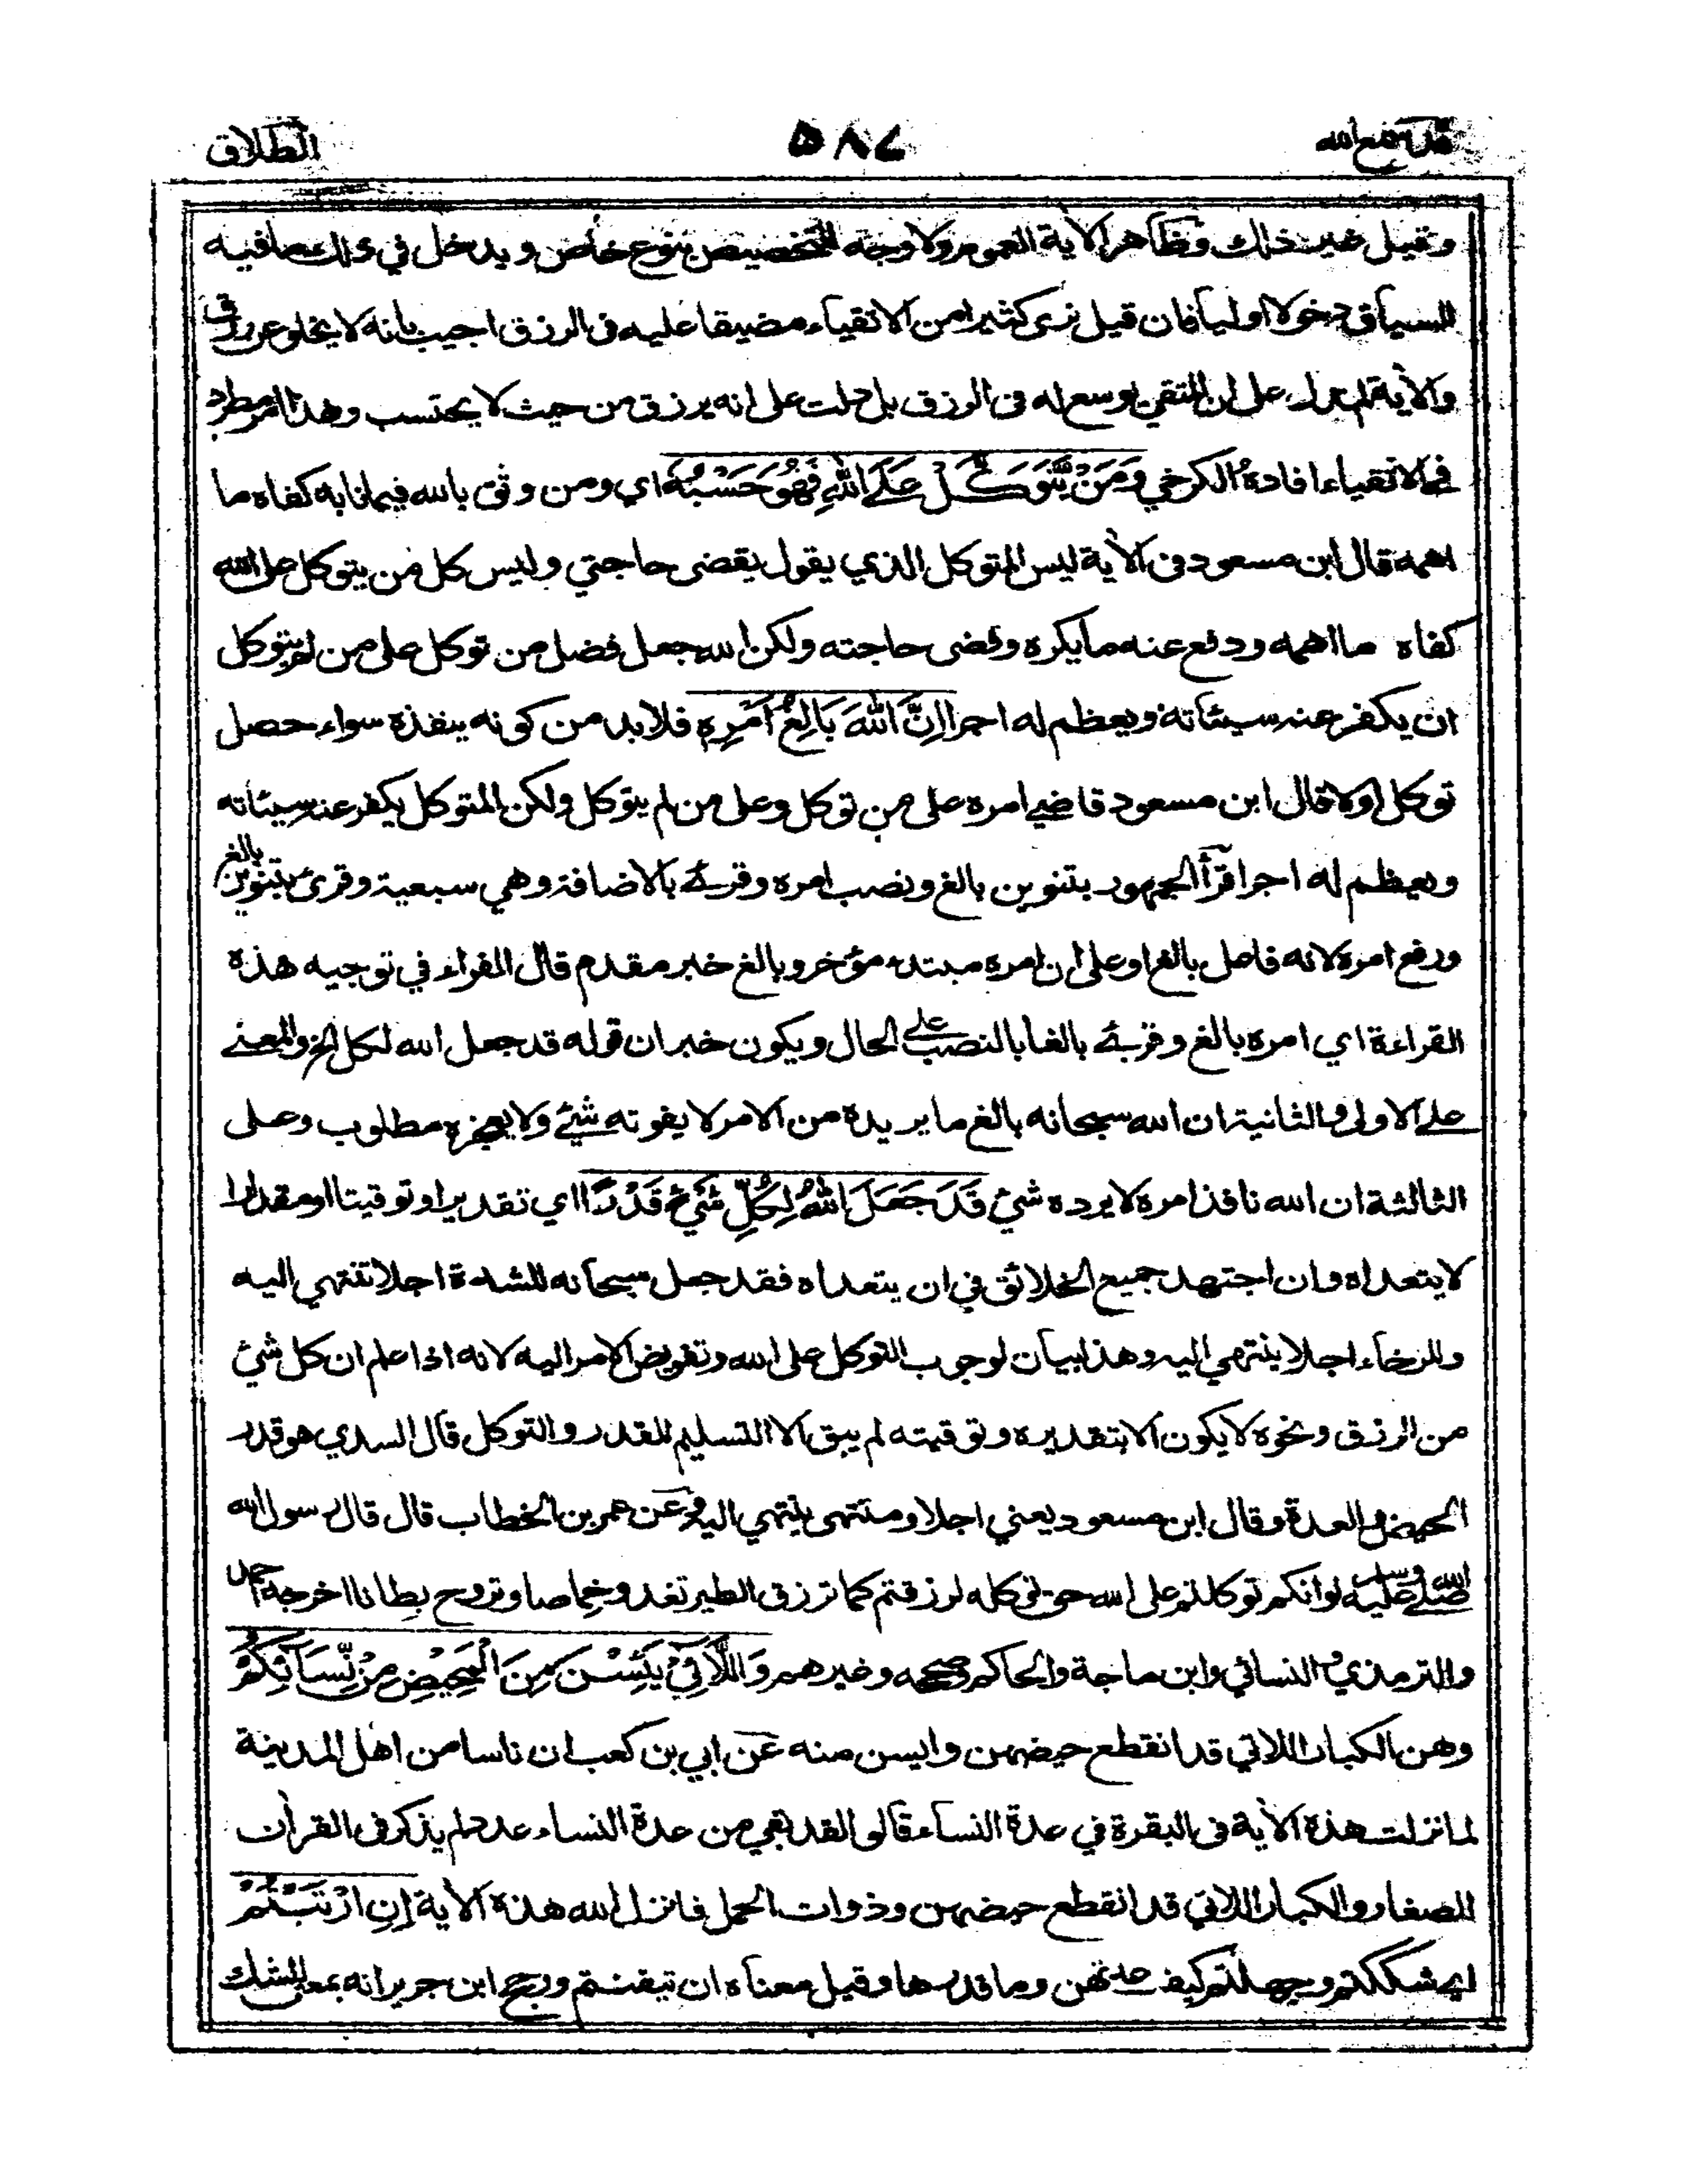 قد سمع الله
٥٨٧
الطلاق
وقيل غير ذلك وظاهر الاٰية العموم ولا وجه للتخصيص بنوع خاص ويدخل في ذلك ما فيه
السياق دخولا اوليا فان قيل نرى كثيرا من الاتقياء مضيقا عليه فى الرزق اجيب بانه لا يخلو عن رزق
والاٰية لم تدل على ان المتقي يوسع له فى الرزق بل دلت على انه يرزق من حيث لا يحتسب وهذا امر مطرد
في الاتقياء افاده الكرخي وَمَنْ يَّتَوَكَّلْ عَلَى اللّٰهِ فَهُوَ حَسْبُهٗ اي ومن وثق بالله فيما نابه كفاه ما
اهمه قال ابن مسعود فى الاٰية ليس المتوكل الذي يقول يقضى حاجتي وليس كل من يتوكل على الله
كفاه ما اهمه ودفع عنه ما يكره وقضى حاجته ولكن الله جعل فضل من توكل على من لم يتوكل
ان يكفر عنه سيئاته ويعظم له اجرا اِنَّ اللّٰهَ بَالِغُ اَمْرِهٖ فلا بد من كونه ينفذه سواء حصل
توكل او لا قال ابن مسعود قاضي امره على من توكل وعلى من لم يتوكل ولكن المتوكل يكفر عنه سيئاته
ويعظم له اجرا قرأ الجمهور بتنوين بالغ ونصب امره وقرئ بالاضافة وهي سبعية وقرئ بتنوين بالغ
ورفع امره لانه فاعل بالغ او على ان امره مبتدء مؤخر وبالغ خبر مقدم قال الفراء في توجيه هذه
القراءة اي امره بالغ وقرئ بالغا بالنصب على الحال ويكون خبر ان قوله قد جعل الله لكل الخ والمعنے
على الاولى والثانية ان الله سبحانه بالغ ما يريده من الامر لا يفوته شيئ ولا يعجزه مطلوب وعلى
الثالثة ان الله نافذ امره لا يرده شيئ قَدْ جَعَلَ اللّٰهُ لِكُلِّ شَيْءٍ قَدْرًا اي تقديرا او توقيتا او مقدارا
لا يتعداه وان اجتهد جميع الخلائق في ان يتعداه فقد جعل سبحانه للشدة اجلا تنتهي اليه
وللرخاء اجلا ينتهي اليه وهذا بيان لوجوب التوكل على الله وتفويض الامر اليه لانه اذا علم ان كل شيئ
من الرزق ونحوه لا يكون الا بتقديره وتوقيته لم يبق الا التسليم للقدر والتوكل قال السدي هو قدر
الحيض والعدة وقال ابن مسعود يعني اجلا ومنتهى ينتهي اليه وعن عمر بن الخطاب قال قال رسول الله
صلى الله عليه وسلم لو انكم توكلتم على الله حق توكله لرزقتم كما ترزق الطير تغدو خماصا وتروح بطانا اخرجه احمد
والترمذي والنسائي وابن ماجة والحاكم وصححه وغيرهم وَاللَّائِيْ يَئِسْنَ مِنَ الْمَحِيْضِ مِنْ نِّسَآئِكُمْ
وهن الكبار اللاتي قد انقطع حيضهن وايسن منه عن ابي بن كعب ان ناسا من اهل المدينة
لما نزلت هذه الاٰية فى البقرة في عدة النساء قالوا لقد بقي من عدة النساء عدد لم يذكر فى القراٰن
الصغار والكبار اللاتي قد انقطع حيضهن وذوات الحمل فانزل الله هذه الاٰية اِنِ ارْتَبْتُمْ
اي شككتم وجهلتم كيف عدتهن وما قدرها وقيل معناه ان تيقنتم ورجح ابن جرير انه بمعنى الشك